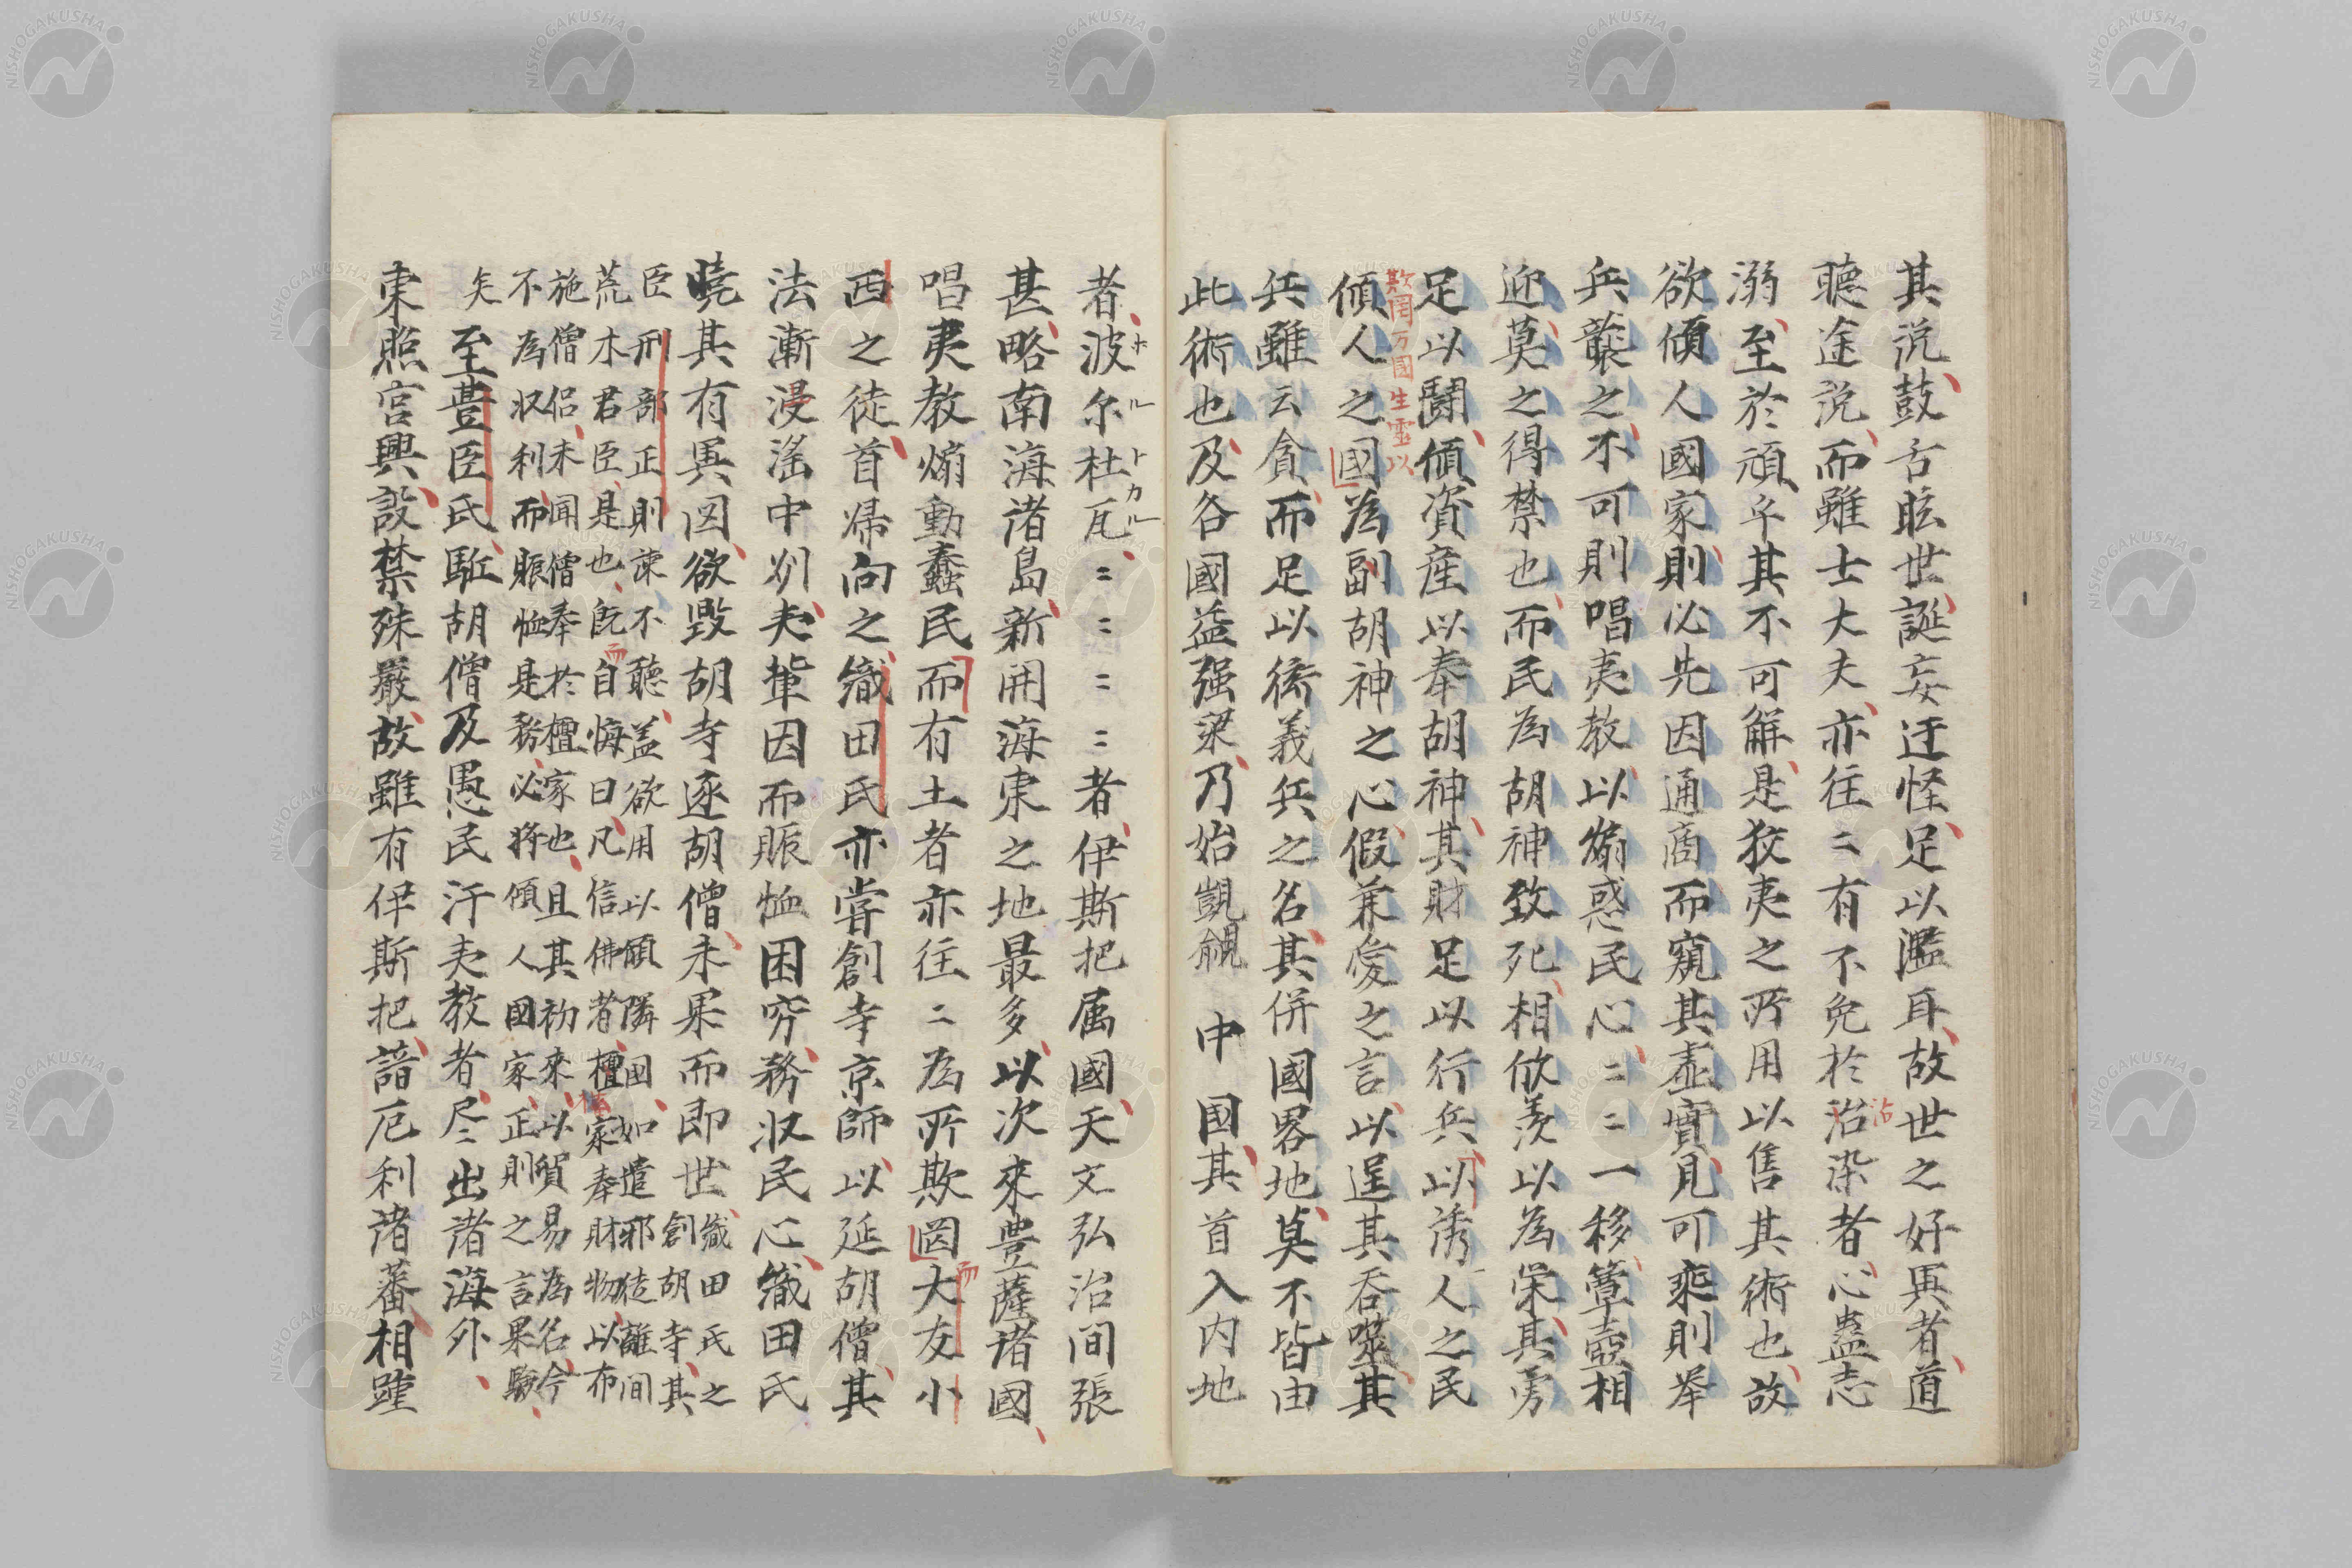 其説鼓舌眩世誕妄迂怪足以濫耳故世之好異者道
聴途説而雖士大夫亦往〻有不免於沿染者心蠱志
沾
溺至於頑乎其不可解是狡夷之所用以售其術也故
欲傾人國家則必先因通商而窺其虚實見可乗則挙
兵襲之不可則唱夷教以煽惑民心〻〻一移簞壺相
迎莫之得禁也而民為胡神致死相欣羨以為栄其勇
足以闘傾資産以奉胡神其財足以行兵以誘人之民
欺罔万國生霊以
傾人之國為副胡神之心假兼愛之言以逞其呑噬其
兵雖云貪而足以衒義兵之名其併國畧地莫不皆由
此術也及各國益强梁乃始覬覦中國其首入内地
者波尓杜瓦〻〻〻〻者伊斯把属國天文弘治間張
ホルトカル
甚略南海諸島新開海東之地最多以次來豊薩諸國
唱夷教煽動蠢民而有土者亦往〻為所欺罔大友小
而
西之徒首帰向之織田氏亦嘗創寺京師以延胡僧其
法漸浸滛中州夷輩因而賑恤困窮務収民心織田氏
暁其有異図欲毀胡寺逐胡僧未果而即世
織田氏之
創胡寺其
臣刑部正則諫不聴盖欲用以傾隣国如遣邪徒離間
荒木君臣是也既自悔曰凡信佛者檀家奉財物以布
而
施僧侶未聞僧奉於檀家也且其初來以貿易為名今
不為収利而賑恤是務必将傾人國家正則之言果験
矣
至豊臣氏駈胡僧及愚民汙夷教者尽〻出諸海外
東照宮興設禁殊嚴故雖有伊斯把諳厄利諸蕃相踵